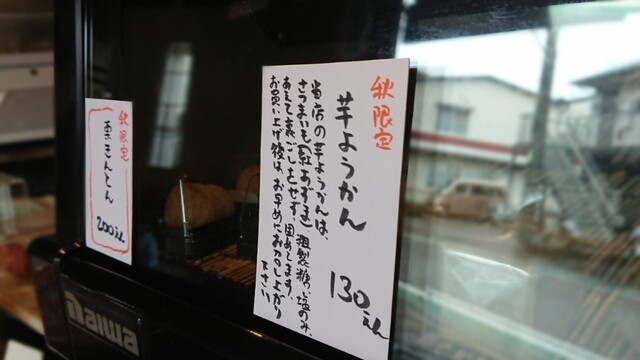 秋限定
芋ようかん
当店の芋ようかんは、
さつまいも(紅あずま)粗製糖、塩のみ、
あえて裏ごしをせず、固めてます。
お買い上げ後は、お早めにお召し上がり
下さい
130えん
秋限定
栗きんとん
200えん
Daiwa